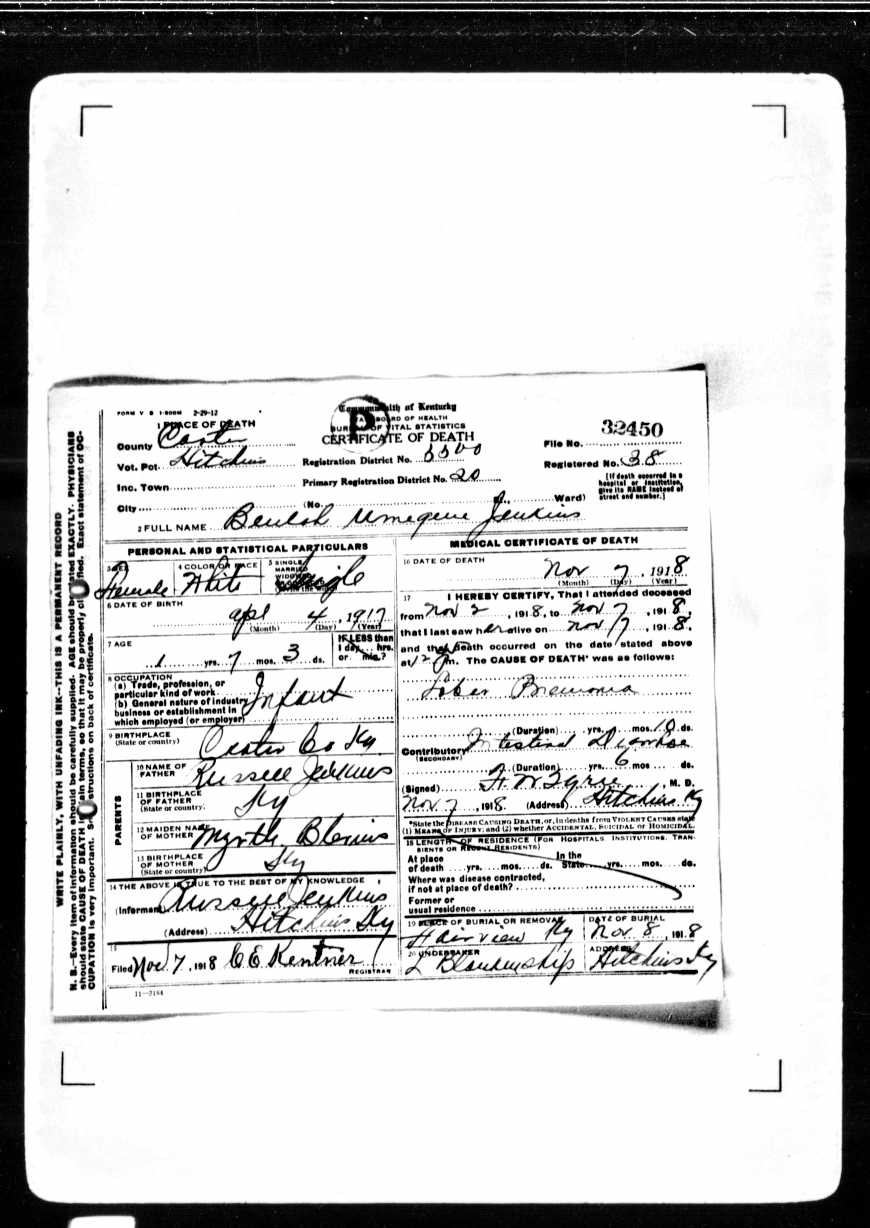 FORM V S 1-500M 2-29-12
Commonwealth of Kentucky
STATE BOARD OF HEALTH
BUREAU OF VITAL STATISTICS
CERTIFICATE OF DEATH
1 PLACE OF DEATH
County Carter
Vot. Pct. Hitchins
Inc. Town
City
Registration District No. 5500
Primary Registration District No. 20
(No. Ward)
File No. 32450
Registered No. 38
[If death occurred in a hospital or institution, give its NAME instead of street and number.]
2 FULL NAME Beulah Umogene Jenkins
PERSONAL AND STATISTICAL PARTICULARS
3 SEX Female
4 COLOR OR RACE White
5 SINGLE MARRIED WIDOWED Single
6 DATE OF BIRTH
Apl 4, 1917
(Month) (Day) (Year)
7 AGE
1 yrs. 7 mos. 3 ds.
IF LESS than 1 day, hrs. or min.?
8 OCCUPATION
(a) Trade, profession, or particular kind of work
(b) General nature of industry business or establishment in which employed (or employer)
Infant
9 BIRTHPLACE
(State or country)
Carter Co Ky
PARENTS
10 NAME OF FATHER Russell Jenkins
11 BIRTHPLACE OF FATHER
(State or country) Ky
12 MAIDEN NAME OF MOTHER Myrtle Blevins
13 BIRTHPLACE OF MOTHER
(State or country) Ky
14 THE ABOVE IS TRUE TO THE BEST OF MY KNOWLEDGE
(Informant) Russell Jenkins
(Address) Hitchins Ky
15
Filed Nov 7, 1918 C E Kentner
REGISTRAR
11-3184
MEDICAL CERTIFICATE OF DEATH
16 DATE OF DEATH
Nov 7, 1918
(Month) (Day) (Year)
17 I HEREBY CERTIFY, That I attended deceased
from Nov 2, 1918, to Nov 7, 1918,
that I last saw her alive on Nov 7, 1918,
and that death occurred on the date stated above
at 12 Pm. The CAUSE OF DEATH* was as follows:
Lober Pnemonia
(Duration) yrs. mos. 10 ds.
Contributory Intestinal Diarrhoe
(SECONDARY)
(Duration) yrs. 6 mos ds.
(Signed) , M. D.
Nov 7, 1918 (Address) Hitchins Ky
*State the DISEASE CAUSING DEATH, or, in deaths from VIOLENT CAUSES state
(1) MEANS OF INJURY; and (2) whether ACCIDENTAL, SUICIDAL or HOMICIDAL.
18 LENGTH OF RESIDENCE (FOR HOSPITALS, INSTITUTIONS, TRANSIENTS OR RECENT RESIDENTS)
At place of death yrs. mos. ds. In the State yrs. mos. ds.
Where was disease contracted, if not at place of death?
Former or usual residence
19 PLACE OF BURIAL OR REMOVAL
Fairview Ky
DATE OF BURIAL
Nov. 8, 1918
20 UNDERTAKER
L Blankenship
ADDRESS
Hitchins Ky
WRITE PLAINLY, WITH UNFADING INK--THIS IS A PERMANENT RECORD
N. B.--Every item of information should be carefully supplied. AGE should be stated EXACTLY. PHYSICIANS
should state CAUSE OF DEATH in plain terms, so that it may be properly classified. Exact statement of OC-
CUPATION is very important. See instructions on back of certificate.